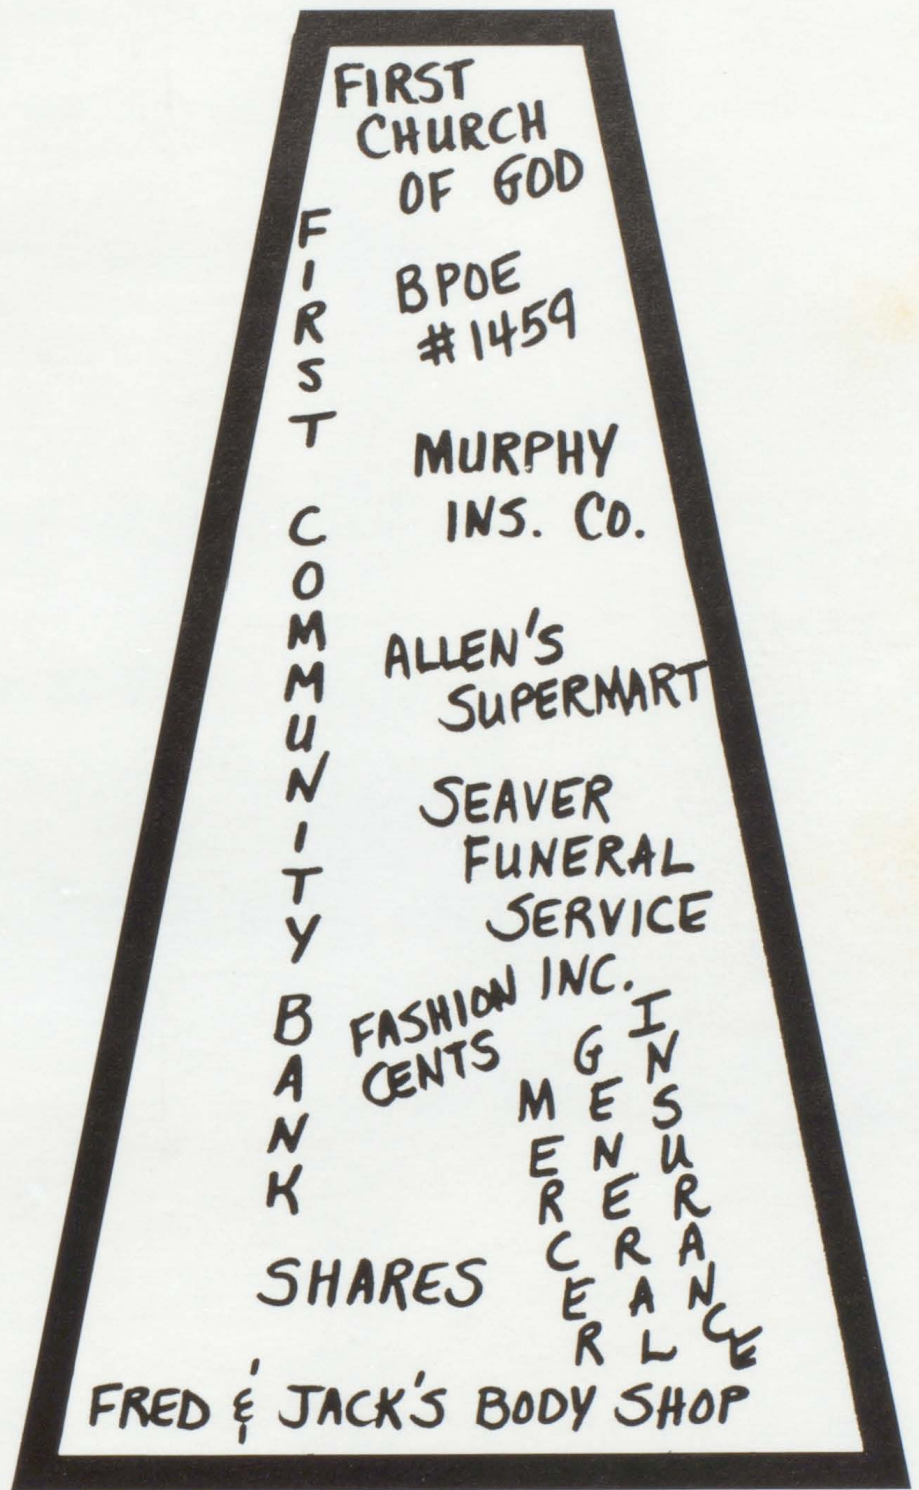 FIRST
CHURCH
OF GOD
FIRST COMMUNITY BANK
BPOE
#1459
MURPHY
INS. CO.
ALLEN'S
SUPERMART
SEAVER
FUNERAL
SERVICE
INC.
FASHION
CENTS
MERCER
GENERAL
INSURANCE
SHARES
FRED & JACK'S BODY SHOP